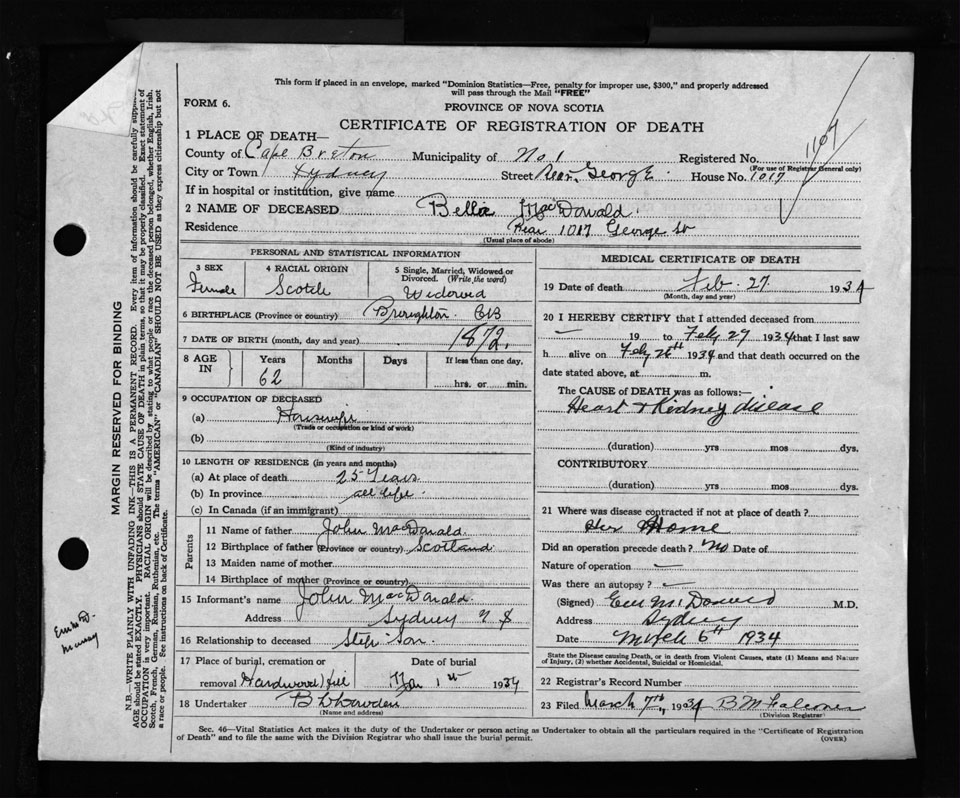 This form if placed in an envelope, marked "Dominion Statistics—Free, penalty for improper use, $300," and properly addressed
will pass through the Mail "FREE"
FORM 6.
PROVINCE OF NOVA SCOTIA
CERTIFICATE OF REGISTRATION OF DEATH
1167
1 PLACE OF DEATH—
County of Cape Breton Municipality of No. 1 Registered No.
(For use of Registrar General only)
City or Town Sydney Street Rear George House No. 1017
If in hospital or institution, give name
2 NAME OF DECEASED Bella MacDonald
Residence Rear 1017 George St
(Usual place of abode)
PERSONAL AND STATISTICAL INFORMATION
3 SEX Female
4 RACIAL ORIGIN Scotch
5 Single, Married, Widowed or Divorced. (Write the word) Widowed
6 BIRTHPLACE (Province or country) Broughton CB
7 DATE OF BIRTH (month, day and year) 1872
8 AGE IN Years Months Days If less than one day,
62 hrs. or min.
9 OCCUPATION OF DECEASED
(a) Housewife
(Trade or occupation or kind of work)
(b)
(Kind of industry)
10 LENGTH OF RESIDENCE (in years and months)
(a) At place of death 25 Years
(b) In province all life
(c) In Canada (if an immigrant)
Parents
11 Name of father John MacDonald
12 Birthplace of father (Province or country) Scotland
13 Maiden name of mother
14 Birthplace of mother (Province or country)
15 Informant's name John MacDonald
Address Sydney N S
16 Relationship to deceased Step Son
17 Place of burial, cremation or Date of burial
removal Hardwood Hill Mar 1st 1934
18 Undertaker
(Name and address)
MEDICAL CERTIFICATE OF DEATH
19 Date of death Feb. 27 1934
(Month, day and year)
20 I HEREBY CERTIFY that I attended deceased from
— 19 to Feby 27 1934 that I last saw
h alive on Feby 26th 1934 and that death occurred on the
date stated above, at m.
The CAUSE OF DEATH was as follows:—
Heart & Kidney disease
(duration) yrs mos dys.
CONTRIBUTORY
(duration) yrs mos dys.
21 Where was disease contracted if not at place of death?
Her Home
Did an operation precede death? No Date of
Nature of operation —
Was there an autopsy? —
(Signed) M.D.
Address Sydney
Date March 6th 1934
State the Disease causing Death, or in death from Violent Causes, state (1) Means and Nature
of Injury, (2) whether Accidental, Suicidal or Homicidal.
22 Registrar's Record Number
23 Filed March 7th, 1934 B M Falconer
(Division Registrar)
Sec. 46—Vital Statistics Act makes it the duty of the Undertaker or person acting as Undertaker to obtain all the particulars required in the "Certificate of Registration
of Death" and to file the same with the Division Registrar who shall issue the burial permit. (OVER)
MARGIN RESERVED FOR BINDING
N.B.—WRITE PLAINLY WITH UNFADING INK—THIS IS A PERMANENT RECORD. Every item of information should be carefully
AGE should be stated EXACTLY. PHYSICIANS should STATE CAUSE OF DEATH in plain terms, so that it may be properly classified. Exact statement of
OCCUPATION is very important. RACIAL ORIGIN will be described by stating to what people or race the deceased person belonged, whether English, Irish,
Scotch, French, German, Russian, Ruthenian, etc. The terms "AMERICAN" or "CANADIAN" SHOULD NOT BE USED as they express citizenship but not
a race or people. See instructions on back of Certificate.
Murray